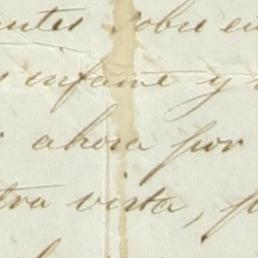 antes sobre en
infame y
ahora por
tra vista, p